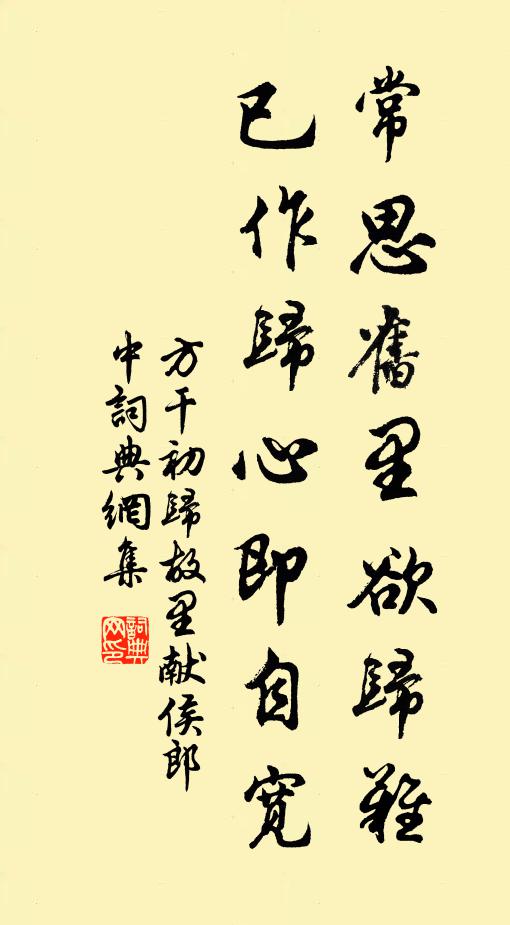 常思舊里欲歸難
已作歸心即自寬
方干初歸故里献侯郎
中詞典網集
詞典网印